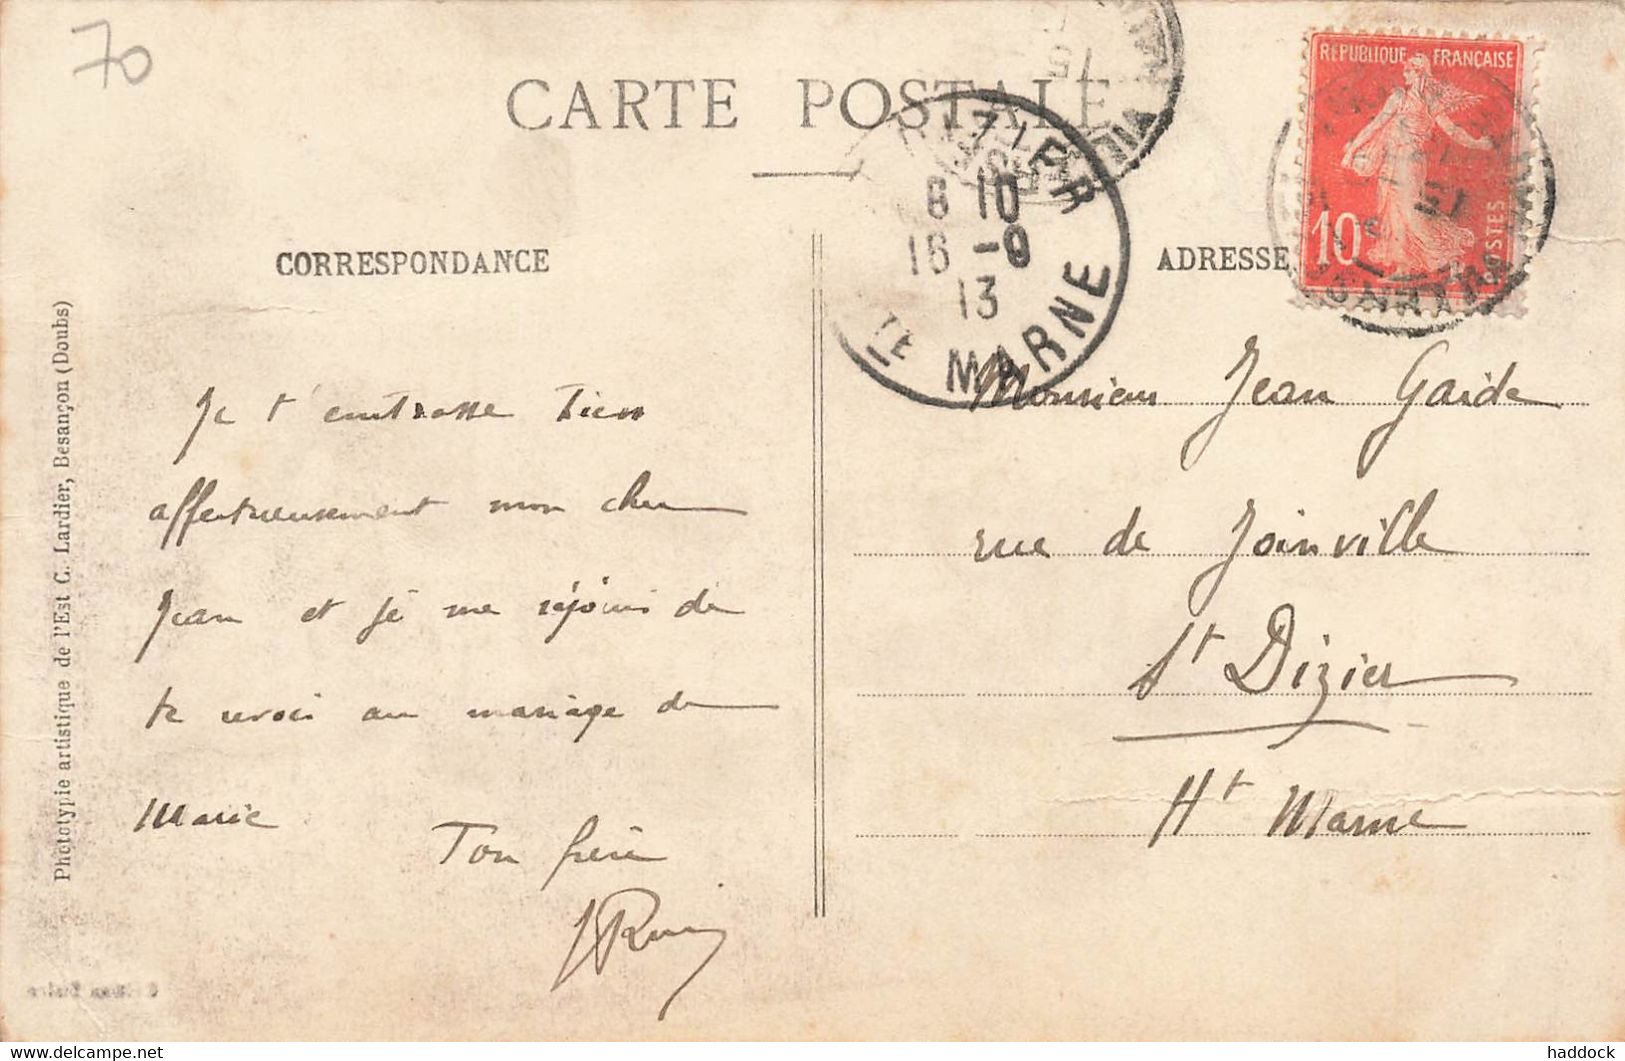 70
CARTE POSTALE
RÉPUBLIQUE FRANÇAISE
10
POSTES
8 10
16 -9
13
TE MARNE
CORRESPONDANCE
ADRESSE
Phototypie artistique de l'Est C. Lardier, Besançon (Doubs)
Je t'embrasse bien
affectueusement mon cher
Jean et je me réjouis de
te revoir au mariage de
Marie
Ton frère
Monsieur Jean Garde
rue de Joinville
St Dizier
Hte Marne
haddock
https://www.delcampe.net